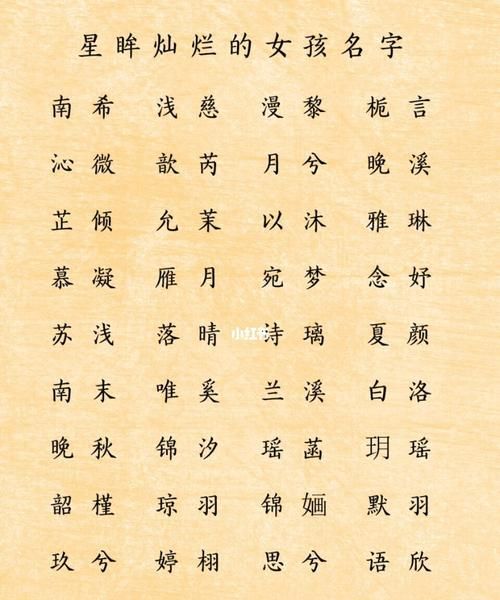 星眸灿烂的女孩名字
南希 浅慈 漫黎 栀言
沁微 歆芮 月兮 晚溪
芷倾 允茉 以沐 雅琳
慕凝 雁月 宛梦 念妤
苏浅 落晴 诗璃 夏颜
小红书
南末 唯奚 兰溪 白洛
晚秋 锦汐 瑶菡 玥瑶
韶槿 琼羽 锦婳 默羽
玖兮 婷栩 思兮 语欣